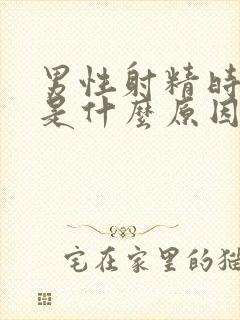 男性射精時
是什麼原因
宅在家里的猫